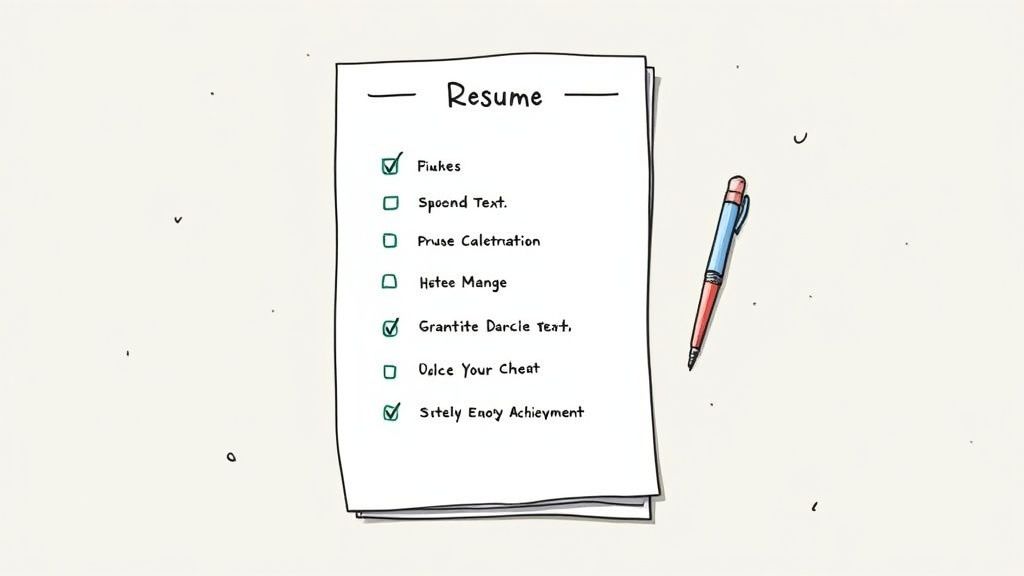 Resume
Fiukes
Spoond Text.
Pruse Caletration
Hetee Mange
Grantite Darcle Text.
Dolce Your Cheat
Sitely Enoy Achieyment